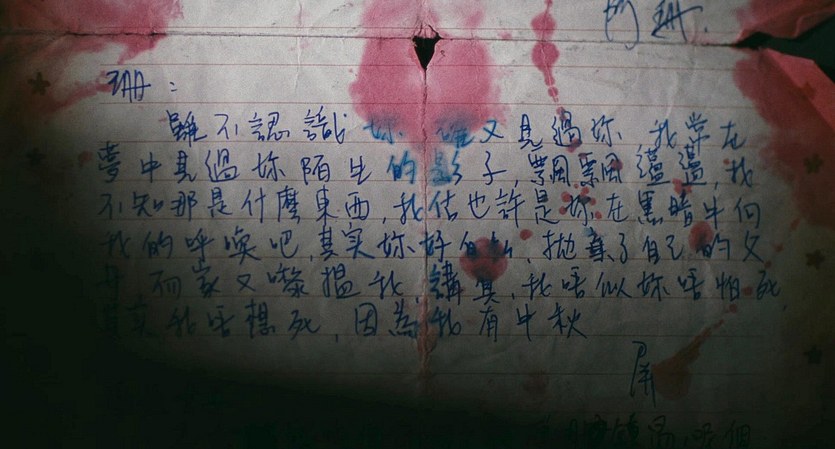 阿珊.
珊：
雖不認識妳 確又見過妳 我常在
夢中見過妳陌生的影子, 飄飄盪盪, 我
不知那是什麼東西, 我估也許是妳在黑暗中向
我的呼喚吧, 其實妳好自私, 拋棄了自己的父
母 而家又嚟搵我, 講真, 我唔似妳唔怕死,
其實我唔想死, 因為我有中秋
屏